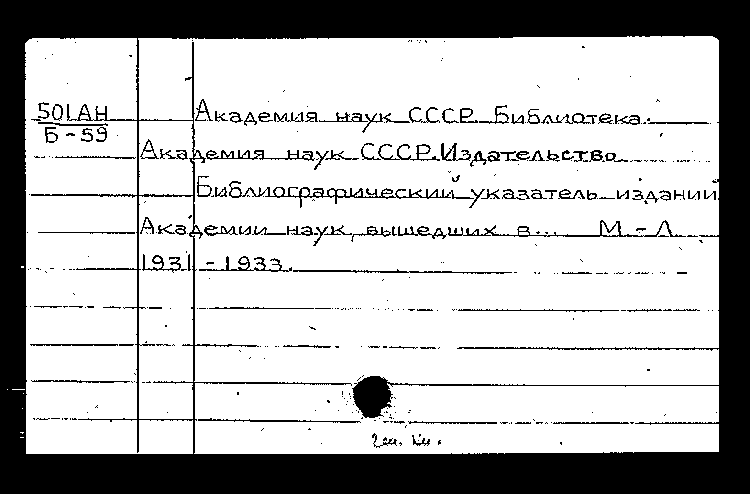 501АН
Б-59
Академия наук СССР. Библиотека.
Академия наук СССР. Издательство.
Библиографический указатель изданий
Академии наук, вышедших в... М-Л
1931-1933.